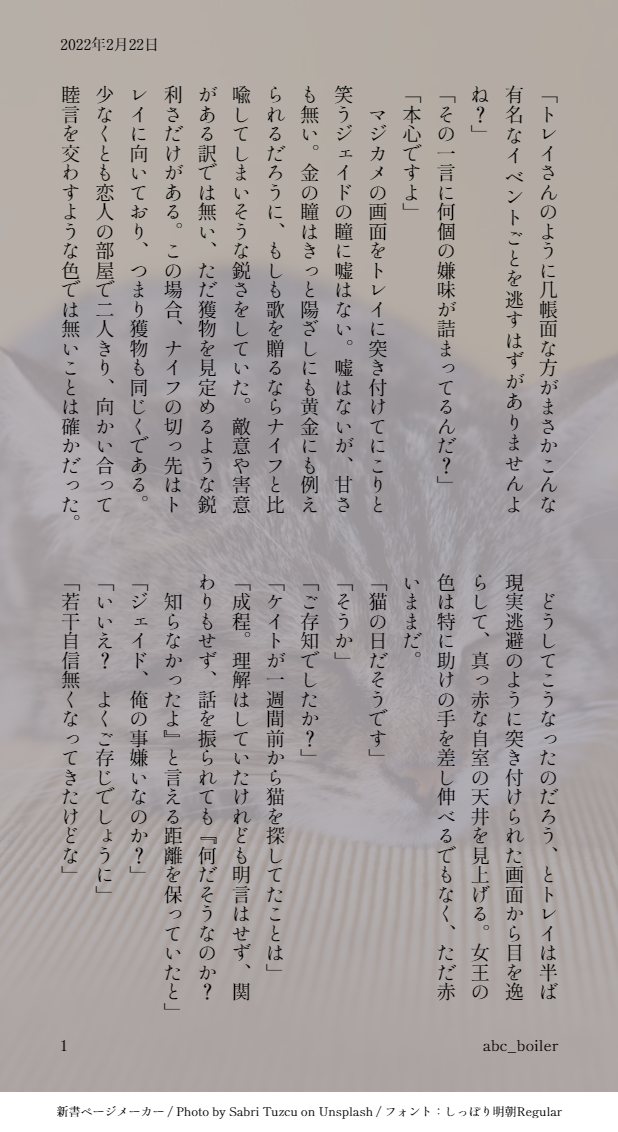 2022年2月22日
「トレイさんのように几帳面な方がまさかこんな
有名なイベントごとを逃すはずがありませんよ
ね？」
「その一言に何個の嫌味が詰まってるんだ？」
「本心ですよ」
　マジカメの画面をトレイに突き付けてにこりと
笑うジェイドの瞳に嘘はない。嘘はないが、甘さ
も無い。金の瞳はきっと陽ざしにも黄金にも例え
られるだろうに、もしも歌を贈るならナイフと比
喩してしまいそうな鋭さをしていた。敵意や害意
がある訳では無い、ただ獲物を見定めるような鋭
利さだけがある。この場合、ナイフの切っ先はト
レイに向いており、つまり獲物も同じくである。
少なくとも恋人の部屋で二人きり、向かい合って
睦言を交わすような色では無いことは確かだった。
　どうしてこうなったのだろう、とトレイは半ば
現実逃避のように突き付けられた画面から目を逸
らして、真っ赤な自室の天井を見上げる。女王の
色は特に助けの手を差し伸べるでもなく、ただ赤
いままだ。
「猫の日だそうです」
「そうか」
「ご存知でしたか？」
「ケイトが一週間前から猫を探してたことは」
「成程。理解はしていたけれども明言はせず、関
わりもせず、話を振られても『何だそうなのか？
　知らなかったよ』と言える距離を保っていたと」
「ジェイド、俺の事嫌いなのか？」
「いいえ？　よくご存じでしょうに」
「若干自信無くなってきたけどな」
1
abc_boiler
新書ページメーカー / Photo by Sabri Tuzcu on Unsplash / フォント：しっぽり明朝Regular